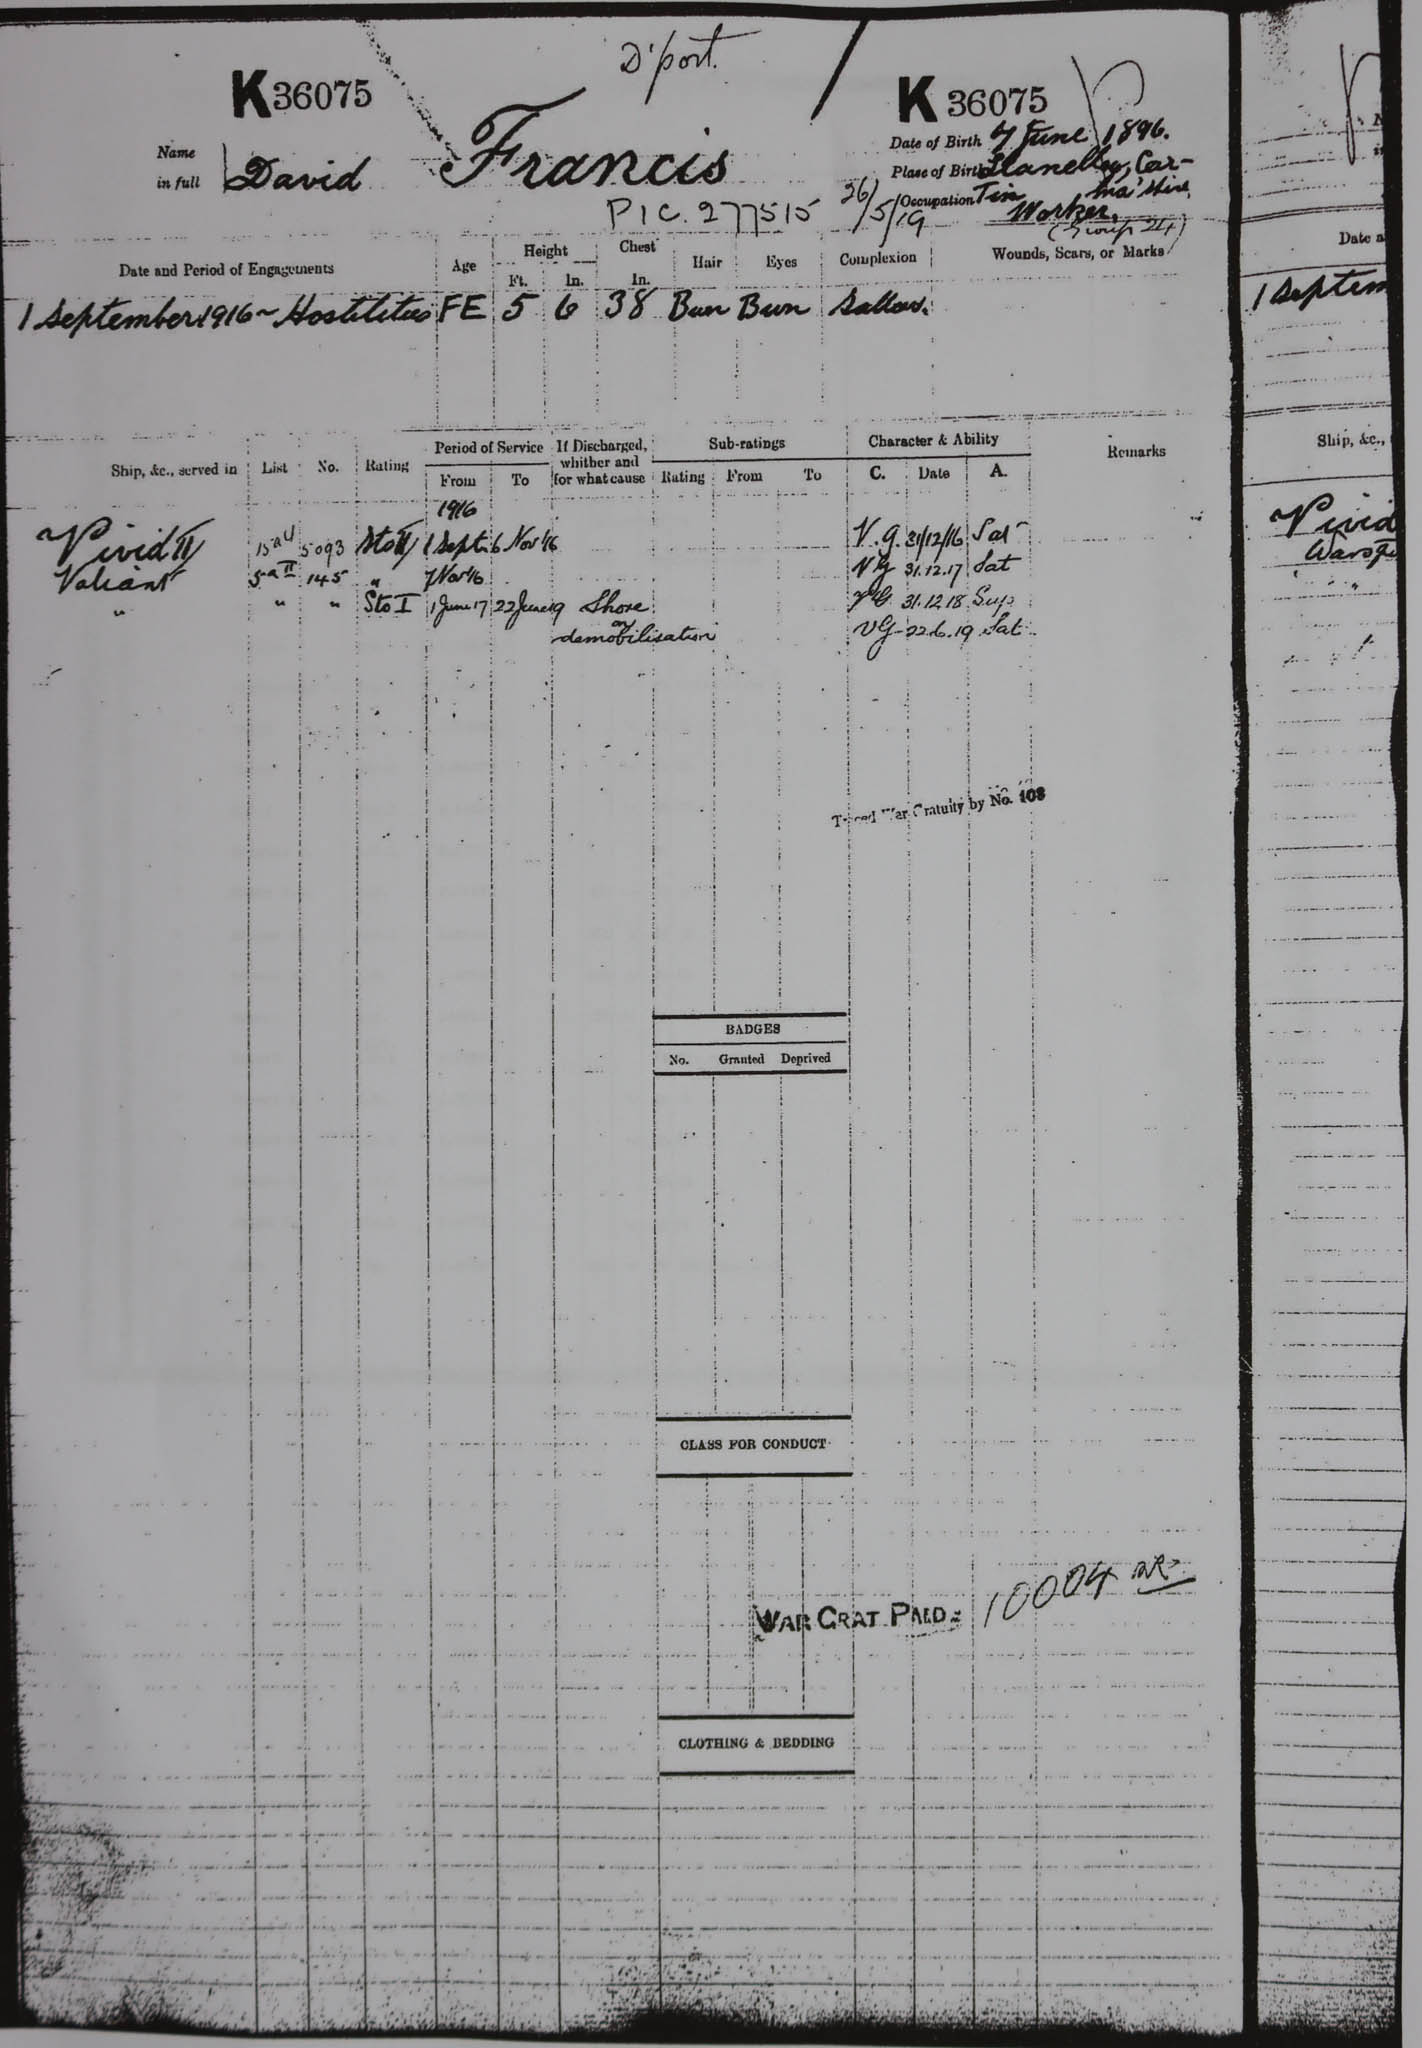 D'port.
K 36075
K 36075
Name in full David Francis
Date of Birth 7 June 1896.
Place of Birth Llanelly, Car-
ma'shire
Occupation Tin
Worker.
(Group 24)
P/C. 277515 26/5/19
Date and Period of Engagements Age Height Chest Hair Eyes Complexion Wounds, Scars, or Marks
Ft. In. In.
1 September 1916 ~ Hostilities FE 5 6 38 Brn Brn Sallow.
Ship, &c., served in List No. Rating Period of Service If Discharged, whither and for what cause Sub-ratings Character & Ability Remarks
From To Rating From To C. Date A.
1916
Vivid II 5093 Sto II 1 Sept. 6 Nov 16 V.G. 31/12/16 Sat
Valiant 5a II 145 " 7 Nov 16 VG 31.12.17 Sat
" " " Sto I 1 June 17 22 June 19 Shore VG 31.12.18 Sup
on
demobilisation VG 22.6.19 Sat
Traced War Gratuity by No. 103
BADGES
No. Granted Deprived
CLASS FOR CONDUCT
WAR GRAT PAID 10004
CLOTHING & BEDDING
Date a
1 Septem
Ship, &c.,
Vivid
Warsp
"